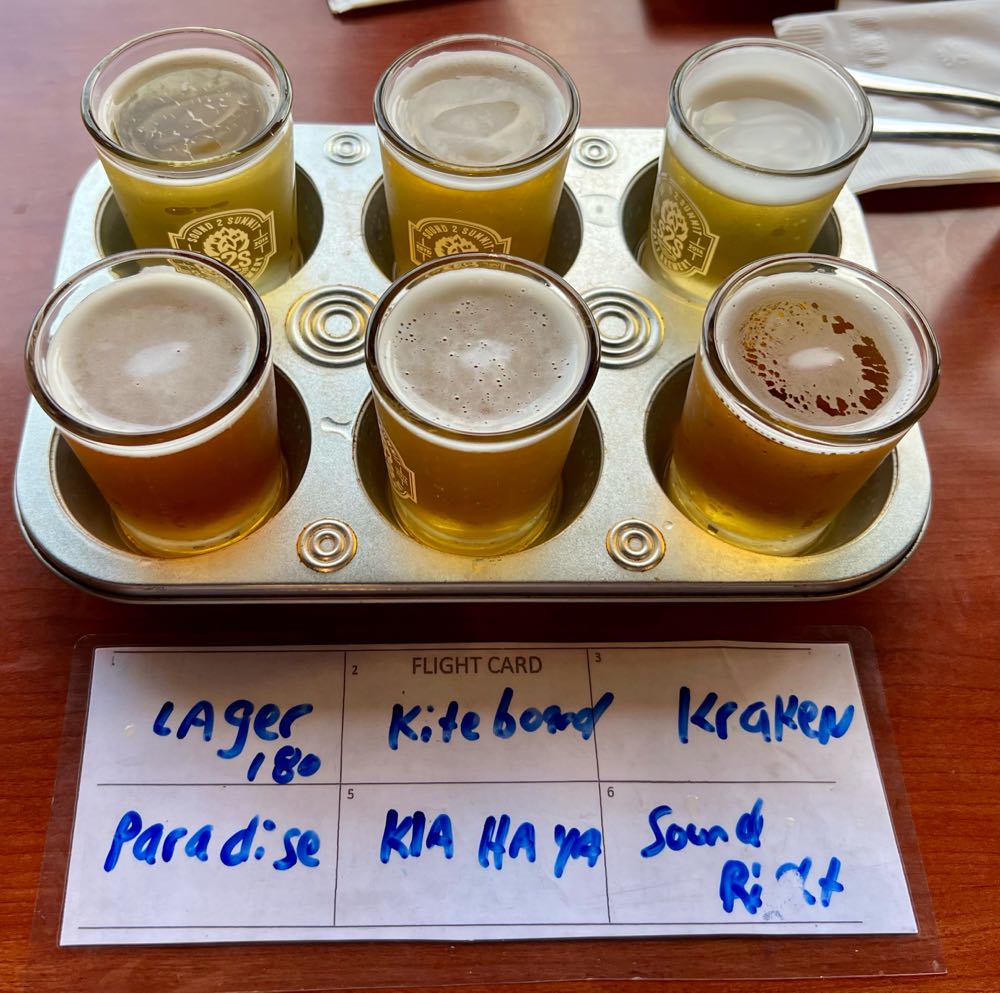 SOUND 2 SUMMIT
S2S
SOUND 2 SUMMIT
FLIGHT CARD
1
2
3
LAger
180
Kiteboard
Kraken
5
6
Paradise
KIA HA YA
Sound
Right